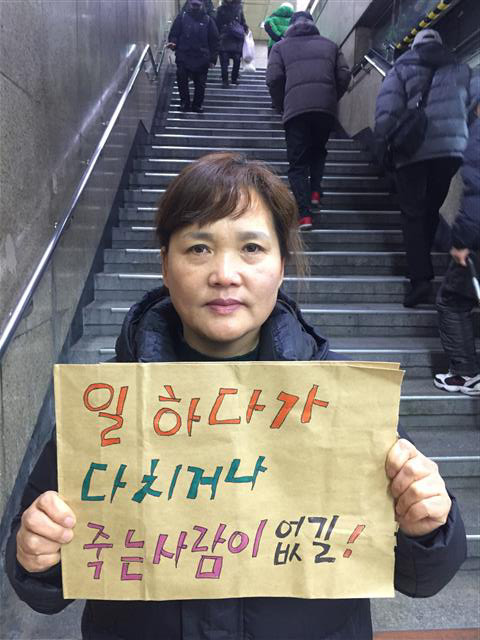 일하다가
다치거나
죽는사람이 없길!